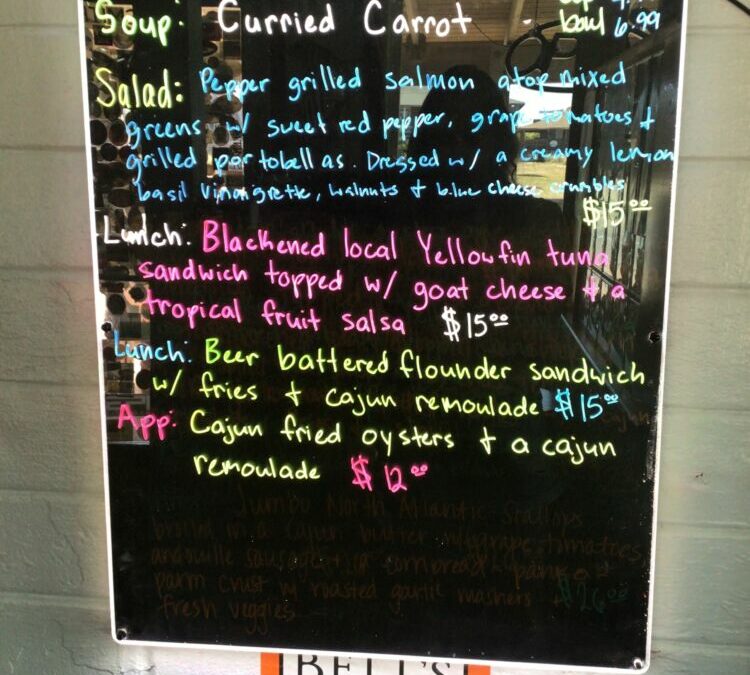 Soup: Curried Carrot - bowl 6.99
Salad: Pepper grilled salmon atop mixed
greens w/ sweet red pepper, grape tomatoes &
grilled portobellas. Dressed w/ a creamy lemon
basil vinaigrette, walnuts & blue cheese crumbles
$15.00
Lunch: Blackened local Yellowfin tuna
sandwich topped w/ goat cheese & a
tropical fruit salsa $15.00
Lunch: Beer battered flounder sandwich
w/ fries & cajun remoulade $15.00
App: Cajun fried oysters & a cajun
remoulade $12.00
Jumbo North Atlantic Scallops
broiled in a cajun butter w/ grape tomatoes,
andouille sausage & a cornbread
parm crust w/ roasted garlic mashers $26.00
fresh veggies
BELL'S